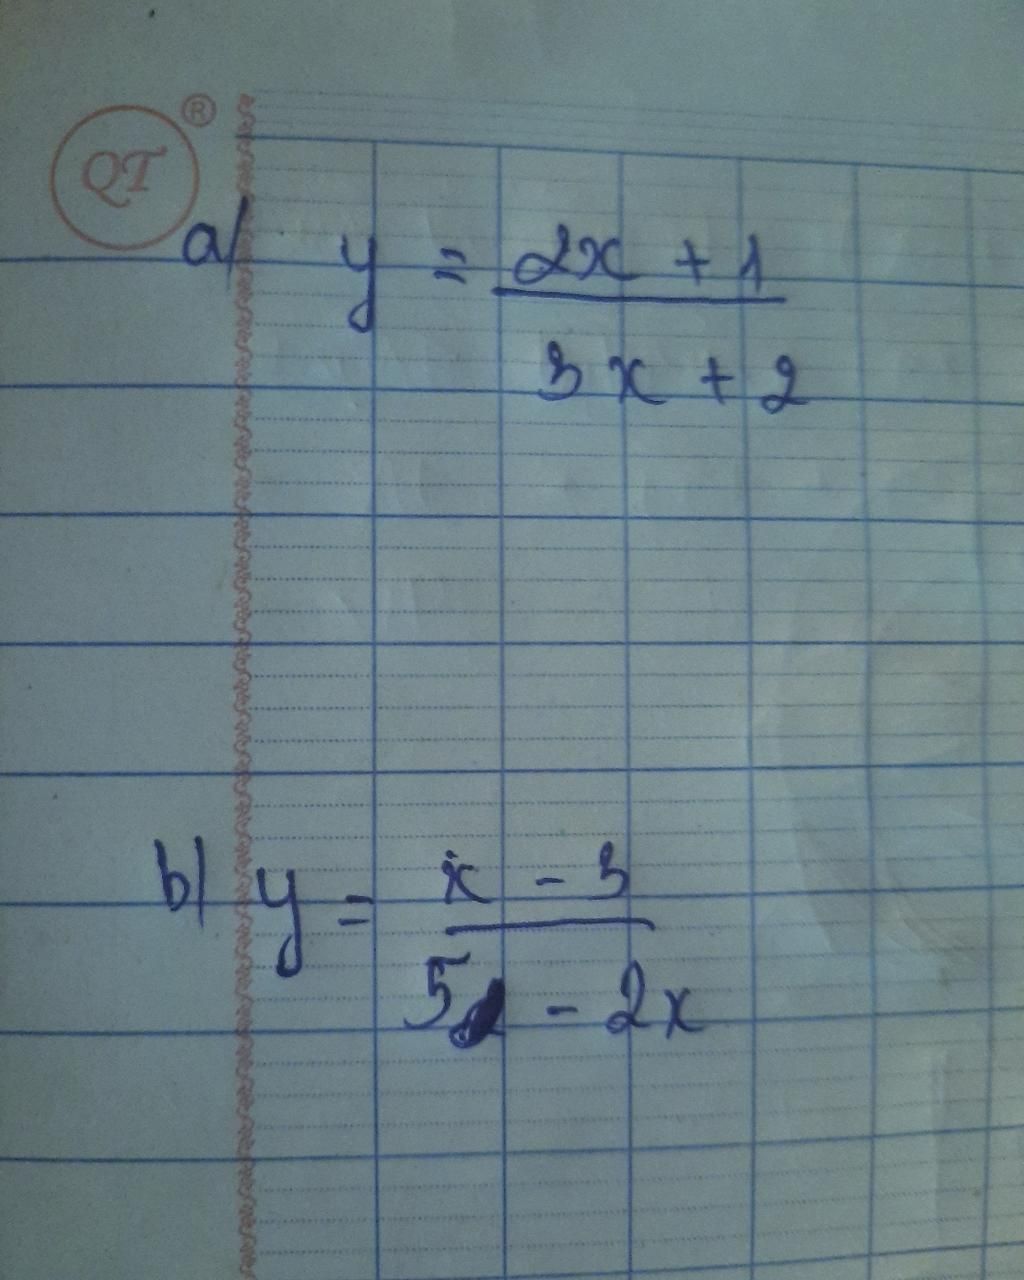 QT ®
a/ y = 2x + 1
3x + 2
b/ y = x - 3
5 - 2x